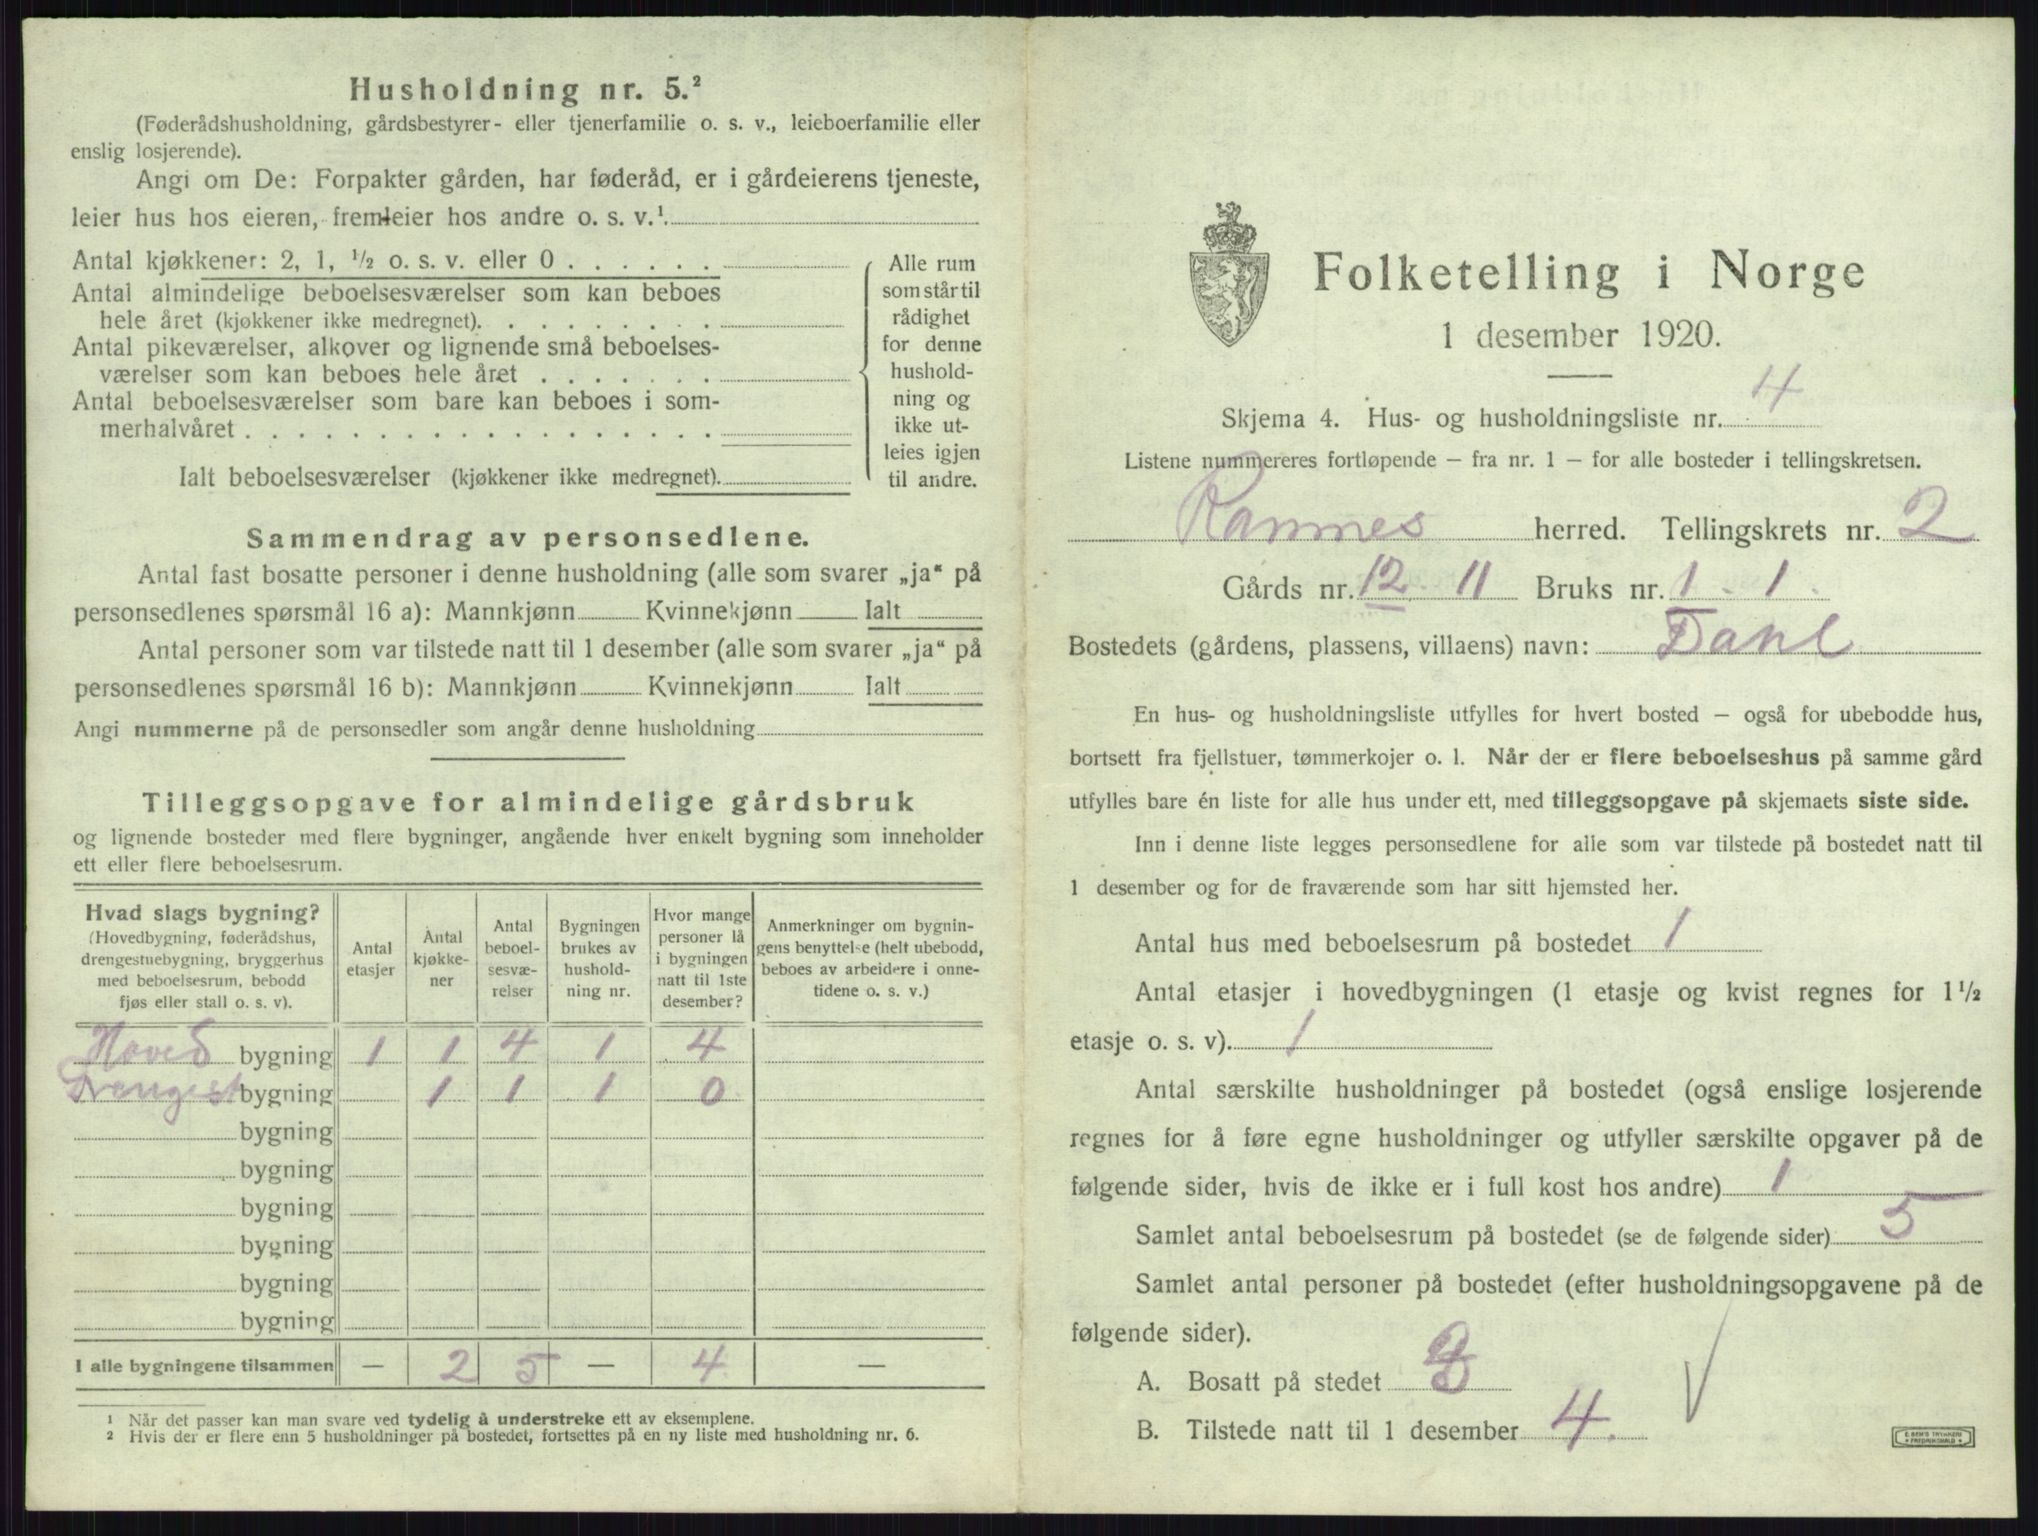 Husholdning nr. 5.²
(Føderådshusholdning, gårdsbestyrer- eller tjenerfamilie o. s. v., leieboerfamilie eller
enslig losjerende).
Angi om De: Forpakter gården, har føderåd, er i gårdeierens tjeneste,
leier hus hos eieren, fremleier hos andre o. s. v.¹.
Antal kjøkkener: 2, 1, ½ o. s. v. eller 0 . . . . . .
Antal almindelige beboelsesværelser som kan beboes
hele året (kjøkkener ikke medregnet). . . . . . . . .
Antal pikeværelser, alkover og lignende små beboelses-
værelser som kan beboes hele året . . . . . . .
Antal beboelsesværelser som bare kan beboes i som-
merhalvåret . . . . . . . . . . . . . . . . . .
Ialt beboelsesværelser (kjøkkener ikke medregnet).
Alle rum
som står til
rådighet
for denne
hushold-
ning og
ikke ut-
leies igjen
til andre.
Sammendrag av personsedlene.
Antal fast bosatte personer i denne husholdning (alle som svarer „ja“ på
personsedlenes spørsmål 16 a): Mannkjønn Kvinnekjønn Ialt
Antal personer som var tilstede natt til 1 desember (alle som svarer „ja“ på
personsedlenes spørsmål 16 b): Mannkjønn Kvinnekjønn Ialt
Angi nummerne på de personsedler som angår denne husholdning
Tilleggsopgave for almindelige gårdsbruk
og lignende bosteder med flere bygninger, angående hver enkelt bygning som inneholder
ett eller flere beboelsesrum.
Hvad slags bygning?
(Hovedbygning, føderådshus,
drengestuebygning, bryggerhus
med beboelsesrum, bebodd
fjøs eller stall o. s. v).
Antal
etasjer
Antal
kjøkke-
ner
Antal
beboel-
sesvæ-
relser
Bygningen
brukes av
hushold-
ning nr.
Hvor mange
personer lå
i bygningen
natt til 1ste
desember?
Anmerkninger om bygnin-
gens benyttelse (helt ubebodd,
beboes av arbeidere i onne-
tidene o. s. v.)
Hoved bygning 1 1 4 1 4
Drengest bygning 1 1 1 0
bygning
bygning
bygning
bygning
bygning
bygning
I alle bygningene tilsammen — 2 5 — 4 —
¹ Når det passer kan man svare ved tydelig å understreke ett av eksemplene.
² Hvis der er flere enn 5 husholdninger på bostedet, fortsettes på en ny liste med husholdning nr. 6.
Folketelling i Norge
1 desember 1920.
Skjema 4. Hus- og husholdningsliste nr. 4
Listene nummereres fortløpende — fra nr. 1 — for alle bosteder i tellingskretsen.
herred. Tellingskrets nr. 2
Gårds nr. 12 . 11 Bruks nr. 1 . 1.
Bostedets (gårdens, plassens, villaens) navn: Dahl
En hus- og husholdningsliste utfylles for hvert bosted — også for ubebodde hus,
bortsett fra fjellstuer, tømmerkojer o. l. Når der er flere beboelseshus på samme gård
utfylles bare én liste for alle hus under ett, med tilleggsopgave på skjemaets siste side.
Inn i denne liste legges personsedlene for alle som var tilstede på bostedet natt til
1 desember og for de fraværende som har sitt hjemsted her.
Antal hus med beboelsesrum på bostedet 1
Antal etasjer i hovedbygningen (1 etasje og kvist regnes for 1½
etasje o. s. v). 1
Antal særskilte husholdninger på bostedet (også enslige losjerende
regnes for å føre egne husholdninger og utfyller særskilte opgaver på de
følgende sider, hvis de ikke er i full kost hos andre) 1
Samlet antal beboelsesrum på bostedet (se de følgende sider) 5
Samlet antal personer på bostedet (efter husholdningsopgavene på de
følgende sider).
A. Bosatt på stedet
B. Tilstede natt til 1 desember 4.